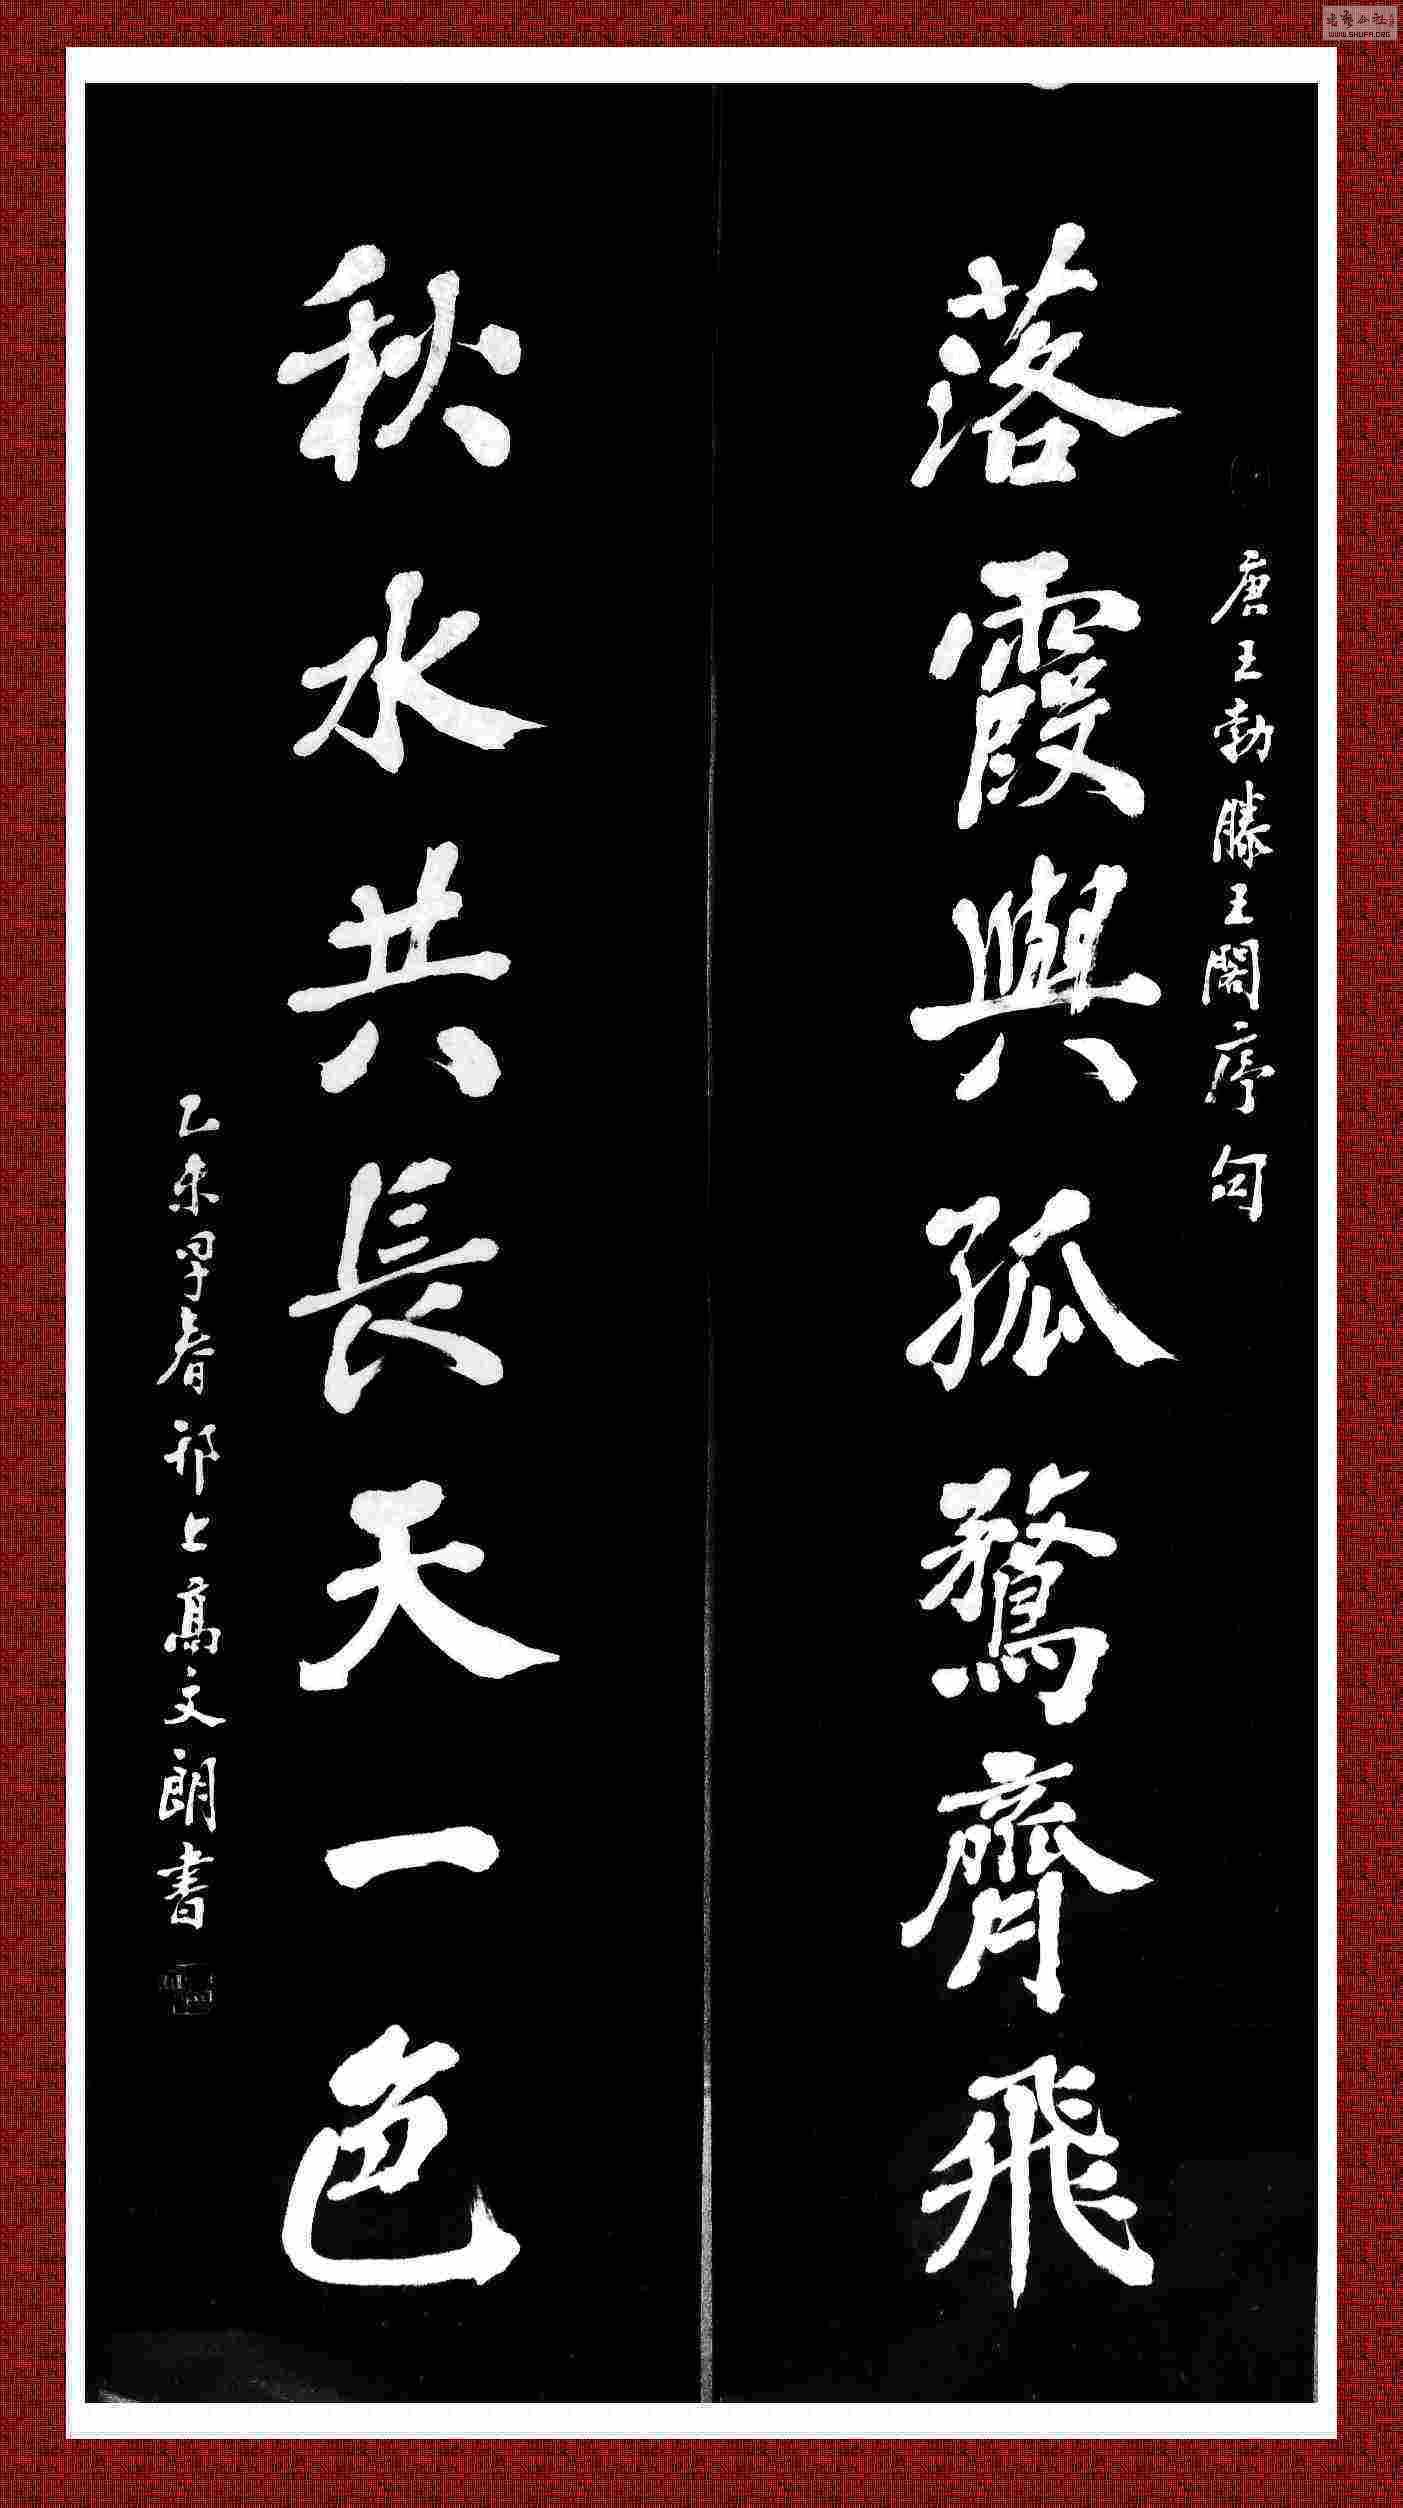 唐王勃滕王閣序句
落霞與孤鶩齊飛
秋水共長天一色
乙未早春邗上髙文朗書
WWW.SHUFA.ORG